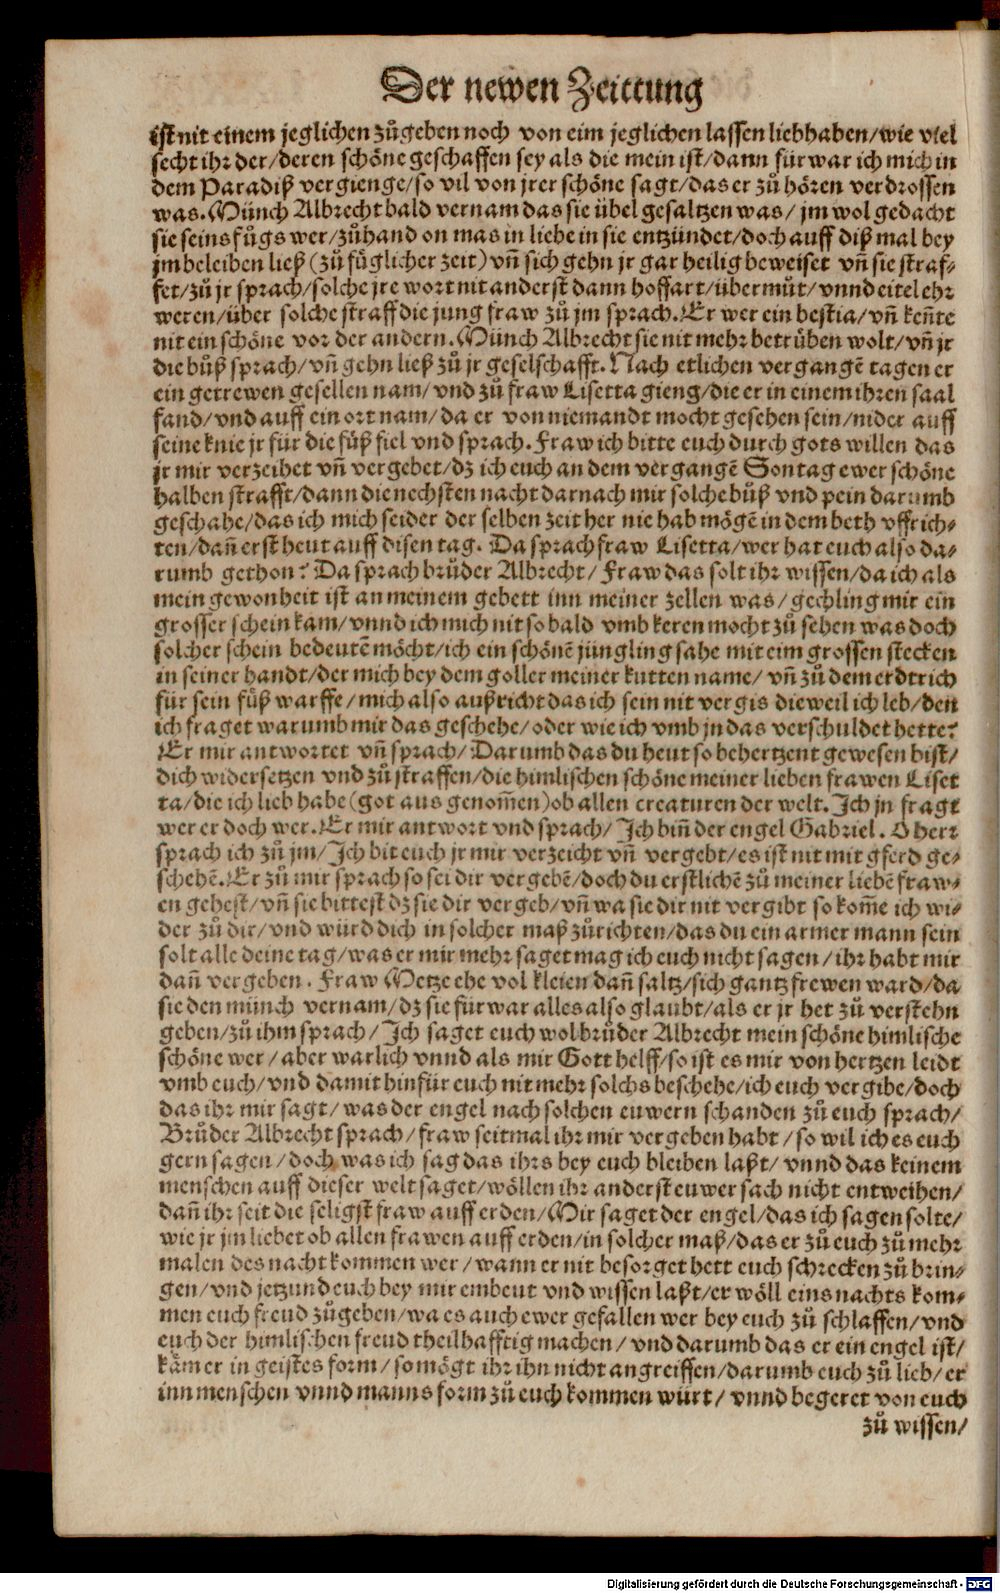 Der newen Zeittung
ist nit einem jeglichen zůgeben noch von eim jeglichen lassen liebhaben/wie viel
secht ihr der/deren schöne geschaffen sey als die mein ist/dann fürwar ich mich in
dem Paradiß vergienge/so vil von jrer schöne sagt/das er zů hören verdrossen
was. Münch Albrecht bald vernam das sie übel gesaltzen was/ jm wol gedacht
sie seins fůgs wer/zůhand on mas in liebe in sie entzündet/doch auff diß mal bey
jm beleiben ließ (zů fůglicher zeit) vñ sich gehn jr gar heilig beweiset vñ sie straf-
fet/zů jr sprach/solche jre wort nit anderst dann hoffart/übermůt/vnnd eitel ehr
weren/über solche straff die jung fraw zů jm sprach. Er wer ein bestia/vñ keñte
nit ein schöne vor der andern. Münch Albrecht sie nit mehr betrüben wolt/vñ jr
die bůß sprach/vñ gehn ließ zů jr geselschafft. Nach etlichen vergangẽ tagen er
ein getrewen gesellen nam/vnd zů fraw Lisetta gieng/die er in einem ihren saal
fand/vnd auff ein ort nam/da er von niemandt mocht gesehen sein/nider auff
seine knie jr für die fůß fiel vnd sprach. Fraw ich bitte euch durch gots willen das
jr mir verzeihet vñ vergebet/dz ich euch an dem vergangẽ Sontag ewer schöne
halben strafft/dann die nechsten nacht darnach mir solche bůß vnd pein darumb
geschahe/das ich mich seider der selben zeit her nie hab mögẽ in dem beth vffrich-
ten/dañ erst heut auff disen tag. Da sprach fraw Lisetta/wer hat euch also da-
rumb gethon? Da sprach brůder Albrecht/ Fraw das solt ihr wissen/da ich als
mein gewonheit ist an meinem gebett inn meiner zellen was/gechling mir ein
grosser schein kam/vnnd ich mich nit so bald vmb keren mocht zů sehen was doch
solcher schein bedeutẽ möcht/ich ein schönẽ jüngling sahe mit eim grossen stecken
in seiner handt/der mich bey dem goller meiner kutten name/ vñ zů dem erdtrich
für sein fůß warffe/mich also außricht das ich sein nit vergis dieweil ich leb/den
ich fraget warumb mir das geschehe/oder wie ich vmb jn das verschuldet hette?
Er mir antwortet vñ sprach/Darumb das du heut so behertzent gewesen bist/
dich widersetzen vnd zů straffen/die himlischen schöne meiner lieben frawen Liset
ta/die ich lieb habe (got aus genom̃en) ob allen creaturen der welt. Ich jn fragt
wer er doch wer. Er mir antwort vnd sprach/ Ich biñ der engel Gabriel. O herr
sprach ich zů jm/Ich bit euch jr mir verzeicht vñ vergebt/es ist nit mit gferd ge-
schehẽ. Er zů mir sprach so sei dir vergebẽ/doch du erstlichẽ zů meiner liebẽ fraw-
en gehest/vñ sie bittest dz sie dir vergeb/vñ wa sie dir nit vergibt so kom̃e ich wi-
der zů dir/vnd würd dich in solcher maß zůrichten/das du ein armer mann sein
solt alle deine tag/was er mir mehr saget mag ich euch nicht sagen/ihr habt mir
dañ vergeben. Fraw Metze ehe vol kleien dañ saltz/sich gantz frewen ward/da
sie den münch vernam/dz sie fürwar alles also glaubt/als er jr het zů verstehn
geben/zů ihm sprach/Ich saget euch wol brůder Albrecht mein schöne himlische
schöne wer/aber warlich vnnd als mir Gott helff/so ist es mir von hertzen leidt
vmb euch/vnd damit hinfür euch nit mehr solchs beschehe/ich euch vergibe/doch
das ihr mir sagt/was der engel nach solchen euwern schanden zů euch sprach/
Brůder Albrecht sprach/fraw seitmal ihr mir vergeben habt/so wil ich es euch
gern sagen/doch was ich sag das ihrs bey euch bleiben laßt/vnnd das keinem
menschen auff dieser welt saget/wöllen ihr anderst euwer sach nicht entweihen/
dañ ihr seit die seligst fraw auff erden/Mir saget der engel/das ich sagen solte/
wie jr jm liebet ob allen frawen auff erden/in solcher maß/das er zů euch zů mehr
malen des nacht kommen wer/wann er nit besorget hett euch schrecken zů brin-
gen/vnd jetzund euch bey mir embeut vnd wissen laßt/er wöll eins nachts kom-
men euch freud zůgeben/wa es auch ewer gefallen wer bey euch zů schlaffen/vnd
euch der himlischen freud theilhafftig machen/vnd darumb das er ein engel ist/
käm er in geistes form/so mögt ihr ihn nicht angreiffen/darumb euch zů lieb/er
inn menschen vnnd manns form zů euch kommen würt/vnnd begeret von euch
zů wissen/
Digitalisierung gefördert durch die Deutsche Forschungsgemeinschaft - DFG